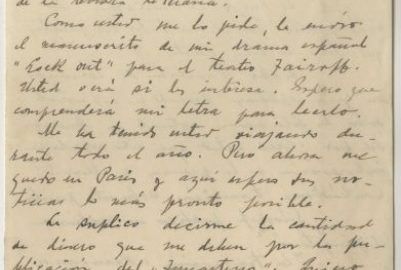 de la
Como usted me lo pide, le envío
el manuscrito de mi drama español
"Lock out" para el teatro Fairoff.
Usted verá si les interesa. Espero que
comprenderá mi letra para leerlo.
Me ha tenido usted viajando du-
rante todo el año. Pero ahora me
quedo en París y aquí espero sus no-
ticias lo más pronto posible.
Le suplico decirme la cantidad
de dinero que me deben por la pu-
blicación del